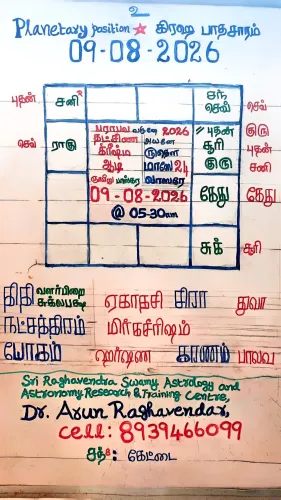 2
Planetary position ★ கிரஹ பாதசாரம்
09-08-2026
புதன்
சனி வ
சந்
செவ்
செவ்
செவ்
ராகு
பராபவ வருஷம் 2026
தட்சிண அயனம்
க்ரீஷ்ம ருதௌ
ஆடி மாஸே 24
வாஸரே
09-08-2026
@ 05-30am
// புதன்
சூரி
குரு
குரு
புதன்
சனி
கேது
கேது
சுக்
சூரி
திதி வளர்பிறை சுக்லபக்ஷ ஏகாதசி சிரா துவா
நட்சத்திரம் மிர்கசீரிஷம்
யோகம் ஹர்ஷண கரணம் பாலவ
Sri Raghavendra Swamy, Astrology and
Astronomy Research & Training Centre,
Dr. Arun Raghavendar,
cell: 8939466099
சந் 8: கேட்டை